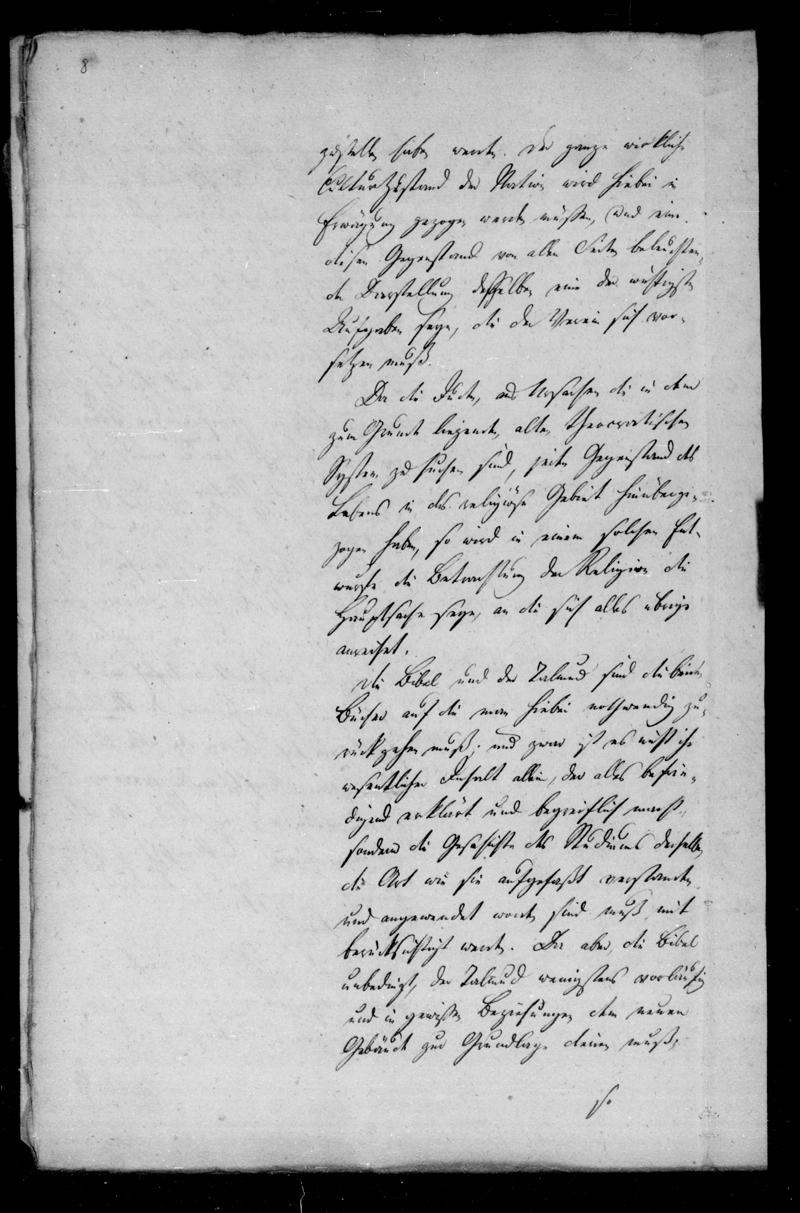 8
zustellen haben werden. Der ganze wirkliche
Culturzustand der Nation wird hiebei in
Erwägung gezogen werden müssen, und eine
diesen Gegenstand von allen Seiten beleuchten-
de Darstellung desselben eine der wichtigsten
Aufgaben seyn, die der Verein sich vor-
setzen muß.
Da die Juden, aus Ursachen die in dem
zum Grunde liegenden, alten theocratischen
System zu suchen sind, jeden Gegenstand des
Lebens in das religiöse Gebiet hinüberge-
zogen haben, so wird in einem solchen Ent-
wurfe die Betrachtung der Religion die
Hauptsache seyn, an die sich alles übrige
anreihet.
Die Bibel und der Talmud sind die beiden
Bücher auf die man hiebei nothwendig zu-
rückgehen muß; und zwar ist es nicht ihr
wesentlicher Inhalt allein, der alles befrie-
digend erklärt und begreiflich macht,
sondern die Geschichte des Studiums derselben
die Art wie sie aufgefaßt verstanden
und angewendet worden sind muß mit
berücksichtigt werden. Da aber, die Bibel
unbedingt, der Talmud wenigstens vorläufig
und in gewissen Beziehungen dem neuen
Gebäude zur Grundlage dienen muß,
so